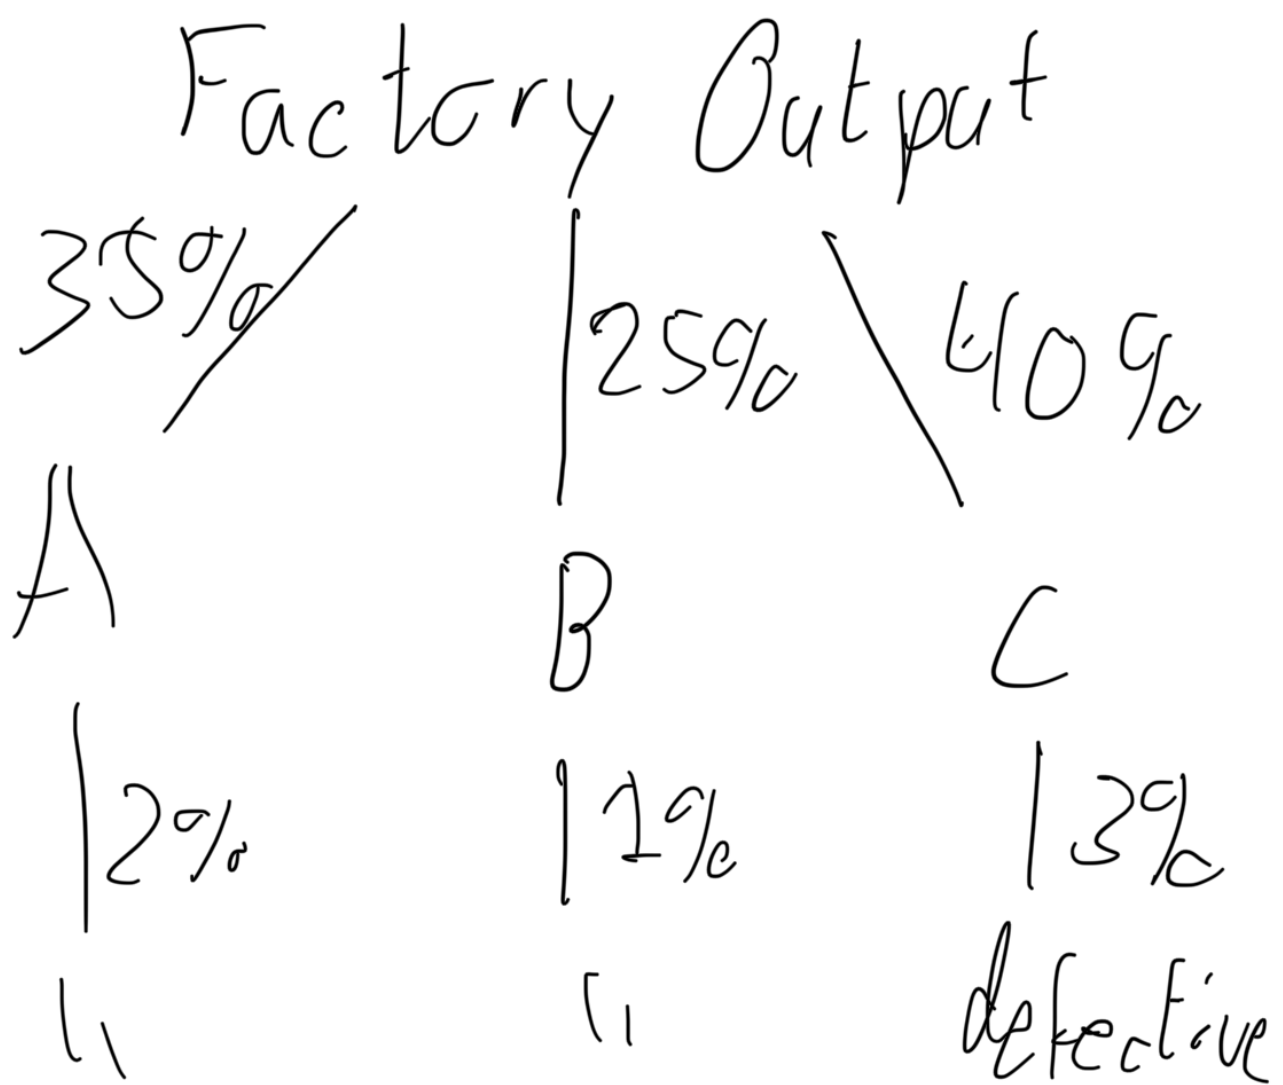 Factory Output
35% 25% 40%
A B C
2% 1% 3%
" " defective